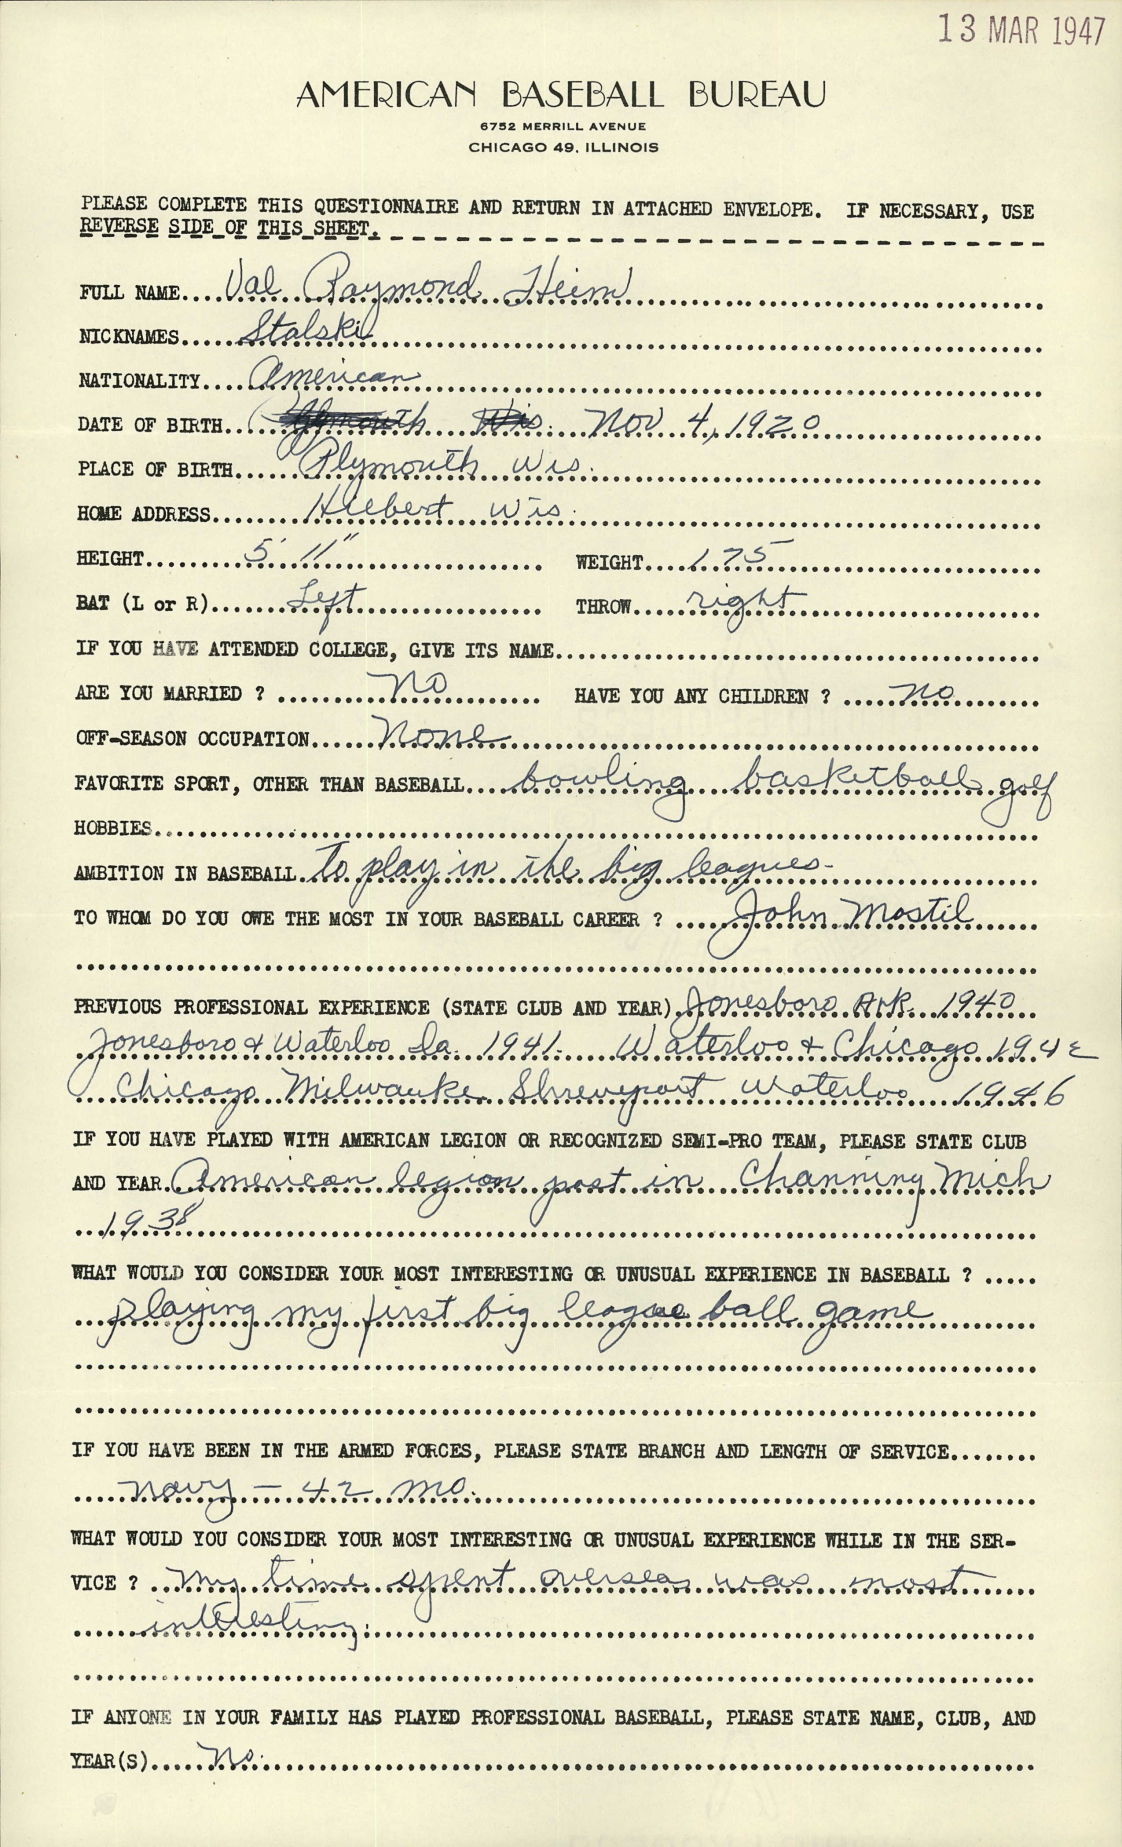 13 MAR 1947
AMERICAN BASEBALL BUREAU
6752 MERRILL AVENUE
CHICAGO 49, ILLINOIS
PLEASE COMPLETE THIS QUESTIONNAIRE AND RETURN IN ATTACHED ENVELOPE. IF NECESSARY, USE
REVERSE SIDE OF THIS SHEET.
FULL NAME.... Val Raymond Heim
NICKNAMES..... Stalski
NATIONALITY.... American
DATE OF BIRTH.... Plymouth Wis. Nov 4, 1920
PLACE OF BIRTH..... Plymouth Wis.
HOME ADDRESS....... Hilbert Wis.
HEIGHT......... 5' 11" WEIGHT.... 175
BAT (L or R)....... Left THROW..... right
IF YOU HAVE ATTENDED COLLEGE, GIVE ITS NAME
ARE YOU MARRIED ? ........ No HAVE YOU ANY CHILDREN ? ..... no
OFF-SEASON OCCUPATION...... None
FAVORITE SPORT, OTHER THAN BASEBALL.... bowling basketball golf
HOBBIES
AMBITION IN BASEBALL. To play in the big leagues-
TO WHOM DO YOU OWE THE MOST IN YOUR BASEBALL CAREER ? ..... John Mostil
PREVIOUS PROFESSIONAL EXPERIENCE (STATE CLUB AND YEAR). Jonesboro Ark. 1940
Jonesboro & Waterloo Ia. 1941. Waterloo & Chicago 1942
Chicago Milwaukee Shreveport Waterloo 1946
IF YOU HAVE PLAYED WITH AMERICAN LEGION OR RECOGNIZED SEMI-PRO TEAM, PLEASE STATE CLUB
AND YEAR. American legion post in Channing Mich
1938
WHAT WOULD YOU CONSIDER YOUR MOST INTERESTING OR UNUSUAL EXPERIENCE IN BASEBALL ? .....
playing my first big league ball game
IF YOU HAVE BEEN IN THE ARMED FORCES, PLEASE STATE BRANCH AND LENGTH OF SERVICE........
Navy - 42 mo.
WHAT WOULD YOU CONSIDER YOUR MOST INTERESTING OR UNUSUAL EXPERIENCE WHILE IN THE SER-
VICE ? My time spent overseas was most
interesting.
IF ANYONE IN YOUR FAMILY HAS PLAYED PROFESSIONAL BASEBALL, PLEASE STATE NAME, CLUB, AND
YEAR(S)..... No.